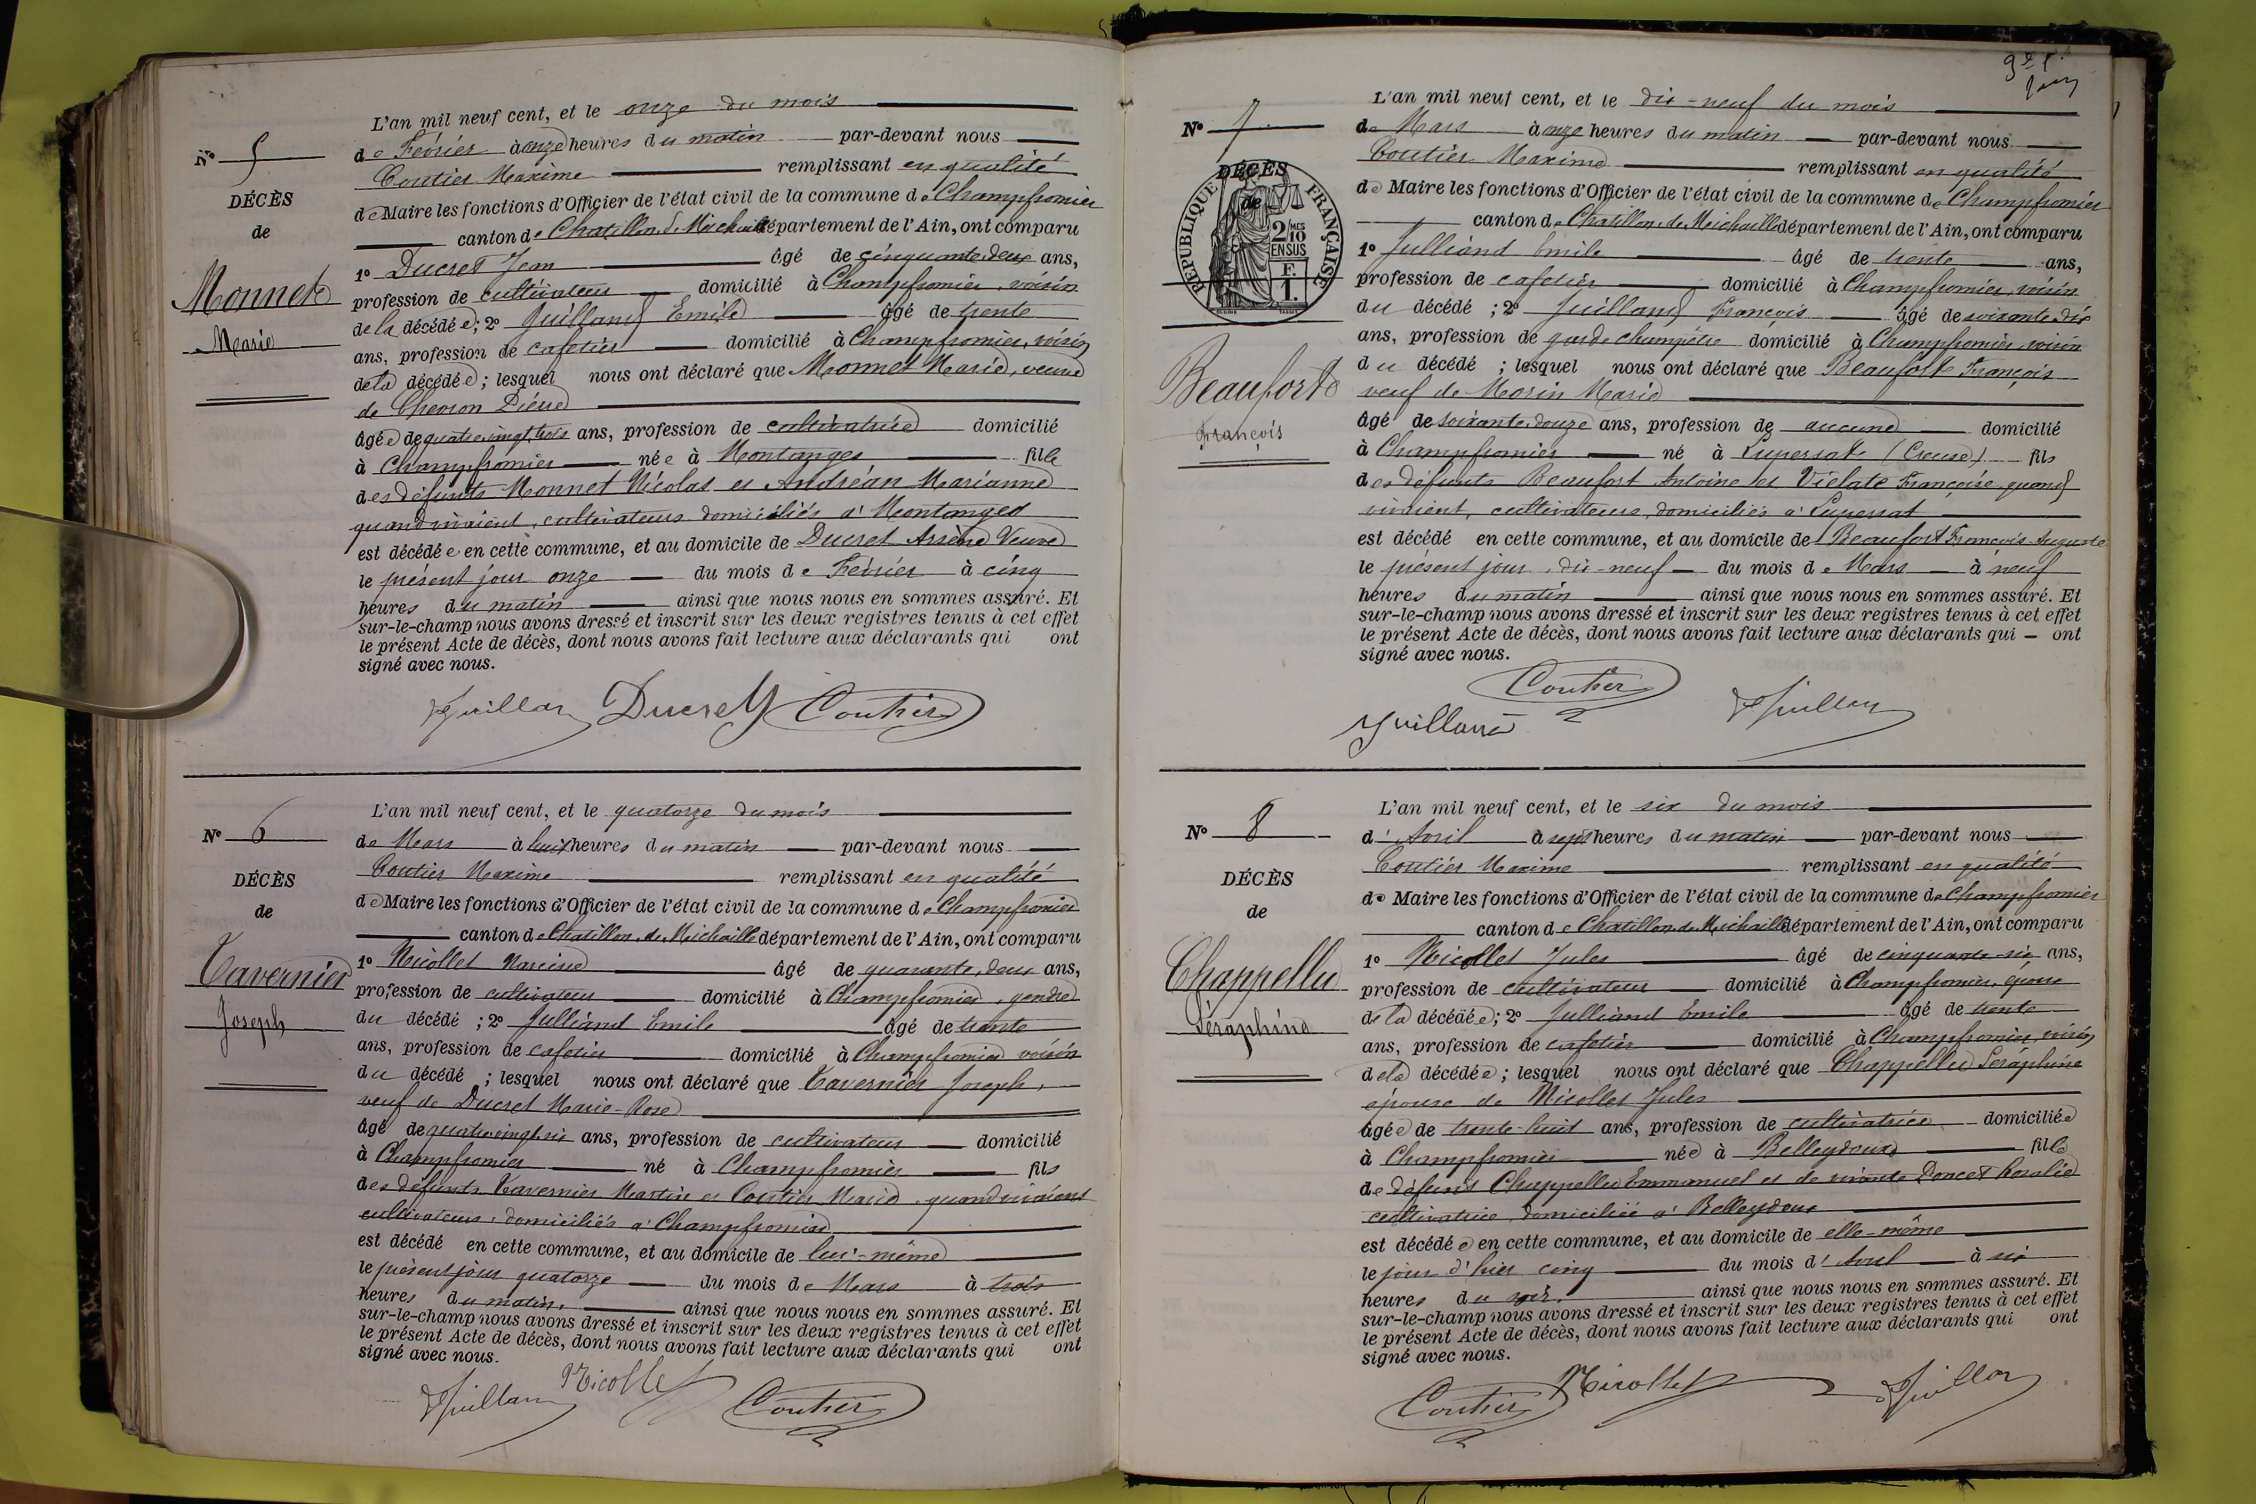 N° 5
DÉCÈS
de
Monnet
Marie
L'an mil neuf cent, et le onze du mois
de Février à onze heures du matin par-devant nous
Coutier Maxime remplissant en qualité
de Maire les fonctions d'Officier de l'état civil de la commune de Champfromier
canton de Chatillon de Michaille département de l'Ain, ont comparu
1° Ducret Jean âgé de cinquante deux ans,
profession de cultivateur domicilié à Champfromier, voisin
de la décédée; 2° Juilland Emile âgé de trente
ans, profession de cafetier domicilié à Champfromier, voisin
de la décédée; lesquel nous ont déclaré que Monnet Marie, veuve
de Chevron Pierre
âgée de quatre vingt trois ans, profession de cultivatrice domicilié
à Champfromier née à Montanges fille
des défunts Monnet Nicolas et Andréan Marianne
quand vivaient, cultivateurs domiciliés à Montanges
est décédée en cette commune, et au domicile de Ducret Arsène Veuve
le présent jour onze du mois de Février à cinq
heures du matin ainsi que nous nous en sommes assuré. Et
sur-le-champ nous avons dressé et inscrit sur les deux registres tenus à cet effet
le présent Acte de décès, dont nous avons fait lecture aux déclarants qui ont
signé avec nous.
Juilland Ducret Coutier
N° 6
DÉCÈS
de
Tavernier
Joseph
L'an mil neuf cent, et le quatorze du mois
de Mars à huit heures du matin par-devant nous
Coutier Maxime remplissant en qualité
de Maire les fonctions d'Officier de l'état civil de la commune de Champfromier
canton de Chatillon de Michaille département de l'Ain, ont comparu
1° Nicollet Narcisse âgé de quarante deux ans,
profession de cultivateur domicilié à Champfromier, gendre
du décédé; 2° Julliand Emile âgé de trente
ans, profession de cafetier domicilié à Champfromier voisin
du décédé; lesquel nous ont déclaré que Tavernier Joseph,
veuf de Ducret Marie-Rose
âgé de quatre vingt six ans, profession de cultivateur domicilié
à Champfromier né à Champfromier fils
des défunts Tavernier Martin et Coutier Marie, quand vivaient
cultivateurs, domiciliés à Champfromier
est décédé en cette commune, et au domicile de lui-même
le présent jour quatorze du mois de Mars à trois
heures du matin, ainsi que nous nous en sommes assuré. Et
sur-le-champ nous avons dressé et inscrit sur les deux registres tenus à cet effet
le présent Acte de décès, dont nous avons fait lecture aux déclarants qui ont
signé avec nous.
Juilland Nicollet Coutier
N° 7
DÉCÈS
de
RÉPUBLIQUE FRANÇAISE
2/10 EN SUS
F. 1.
Beaufort
François
L'an mil neuf cent, et le dix-neuf du mois
de Mars à onze heures du matin par-devant nous
Coutier Maxime remplissant en qualité
de Maire les fonctions d'Officier de l'état civil de la commune de Champfromier
canton de Chatillon de Michaille département de l'Ain, ont comparu
1° Julliand Emile âgé de trente ans,
profession de cafetier domicilié à Champfromier, voisin
du décédé; 2° Juilland François âgé de soixante dix
ans, profession de garde champêtre domicilié à Champfromier voisin
du décédé; lesquel nous ont déclaré que Beaufort François
veuf de Morin Marie
âgé de soixante douze ans, profession de aucune domicilié
à Champfromier né à Lupersat (Creuse) fils
des défunts Beaufort Antoine et Vielate Françoise, quand
vivaient, cultivateurs, domiciliés à Lupersat
est décédé en cette commune, et au domicile de Beaufort François Auguste
le présent jour, dix-neuf du mois de Mars à neuf
heures du matin ainsi que nous nous en sommes assuré. Et
sur-le-champ nous avons dressé et inscrit sur les deux registres tenus à cet effet
le présent Acte de décès, dont nous avons fait lecture aux déclarants qui – ont
signé avec nous.
Coutier
Juilland Juilland
N° 8
DÉCÈS
de
Chappellu
Séraphine
L'an mil neuf cent, et le six du mois
d'Avril à sept heures du matin par-devant nous
Coutier Maxime remplissant en qualité
de Maire les fonctions d'Officier de l'état civil de la commune de Champfromier
canton de Chatillon de Michaille département de l'Ain, ont comparu
1° Nicollet Jules âgé de cinquante six ans,
profession de cultivateur domicilié à Champfromier, époux
de la décédée; 2° Julliand Emile âgé de trente
ans, profession de cafetier domicilié à Champfromier, voisin
de la décédée; lesquel nous ont déclaré que Chappellu Séraphine
épouse de Nicollet Jules
âgée de trente-huit ans, profession de cultivatrice domiciliée
à Champfromier née à Belleydoux fille
de défunt Chappellu Emmanuel et de vivante Poncet Rosalie
cultivatrice, domiciliée à Belleydoux
est décédée en cette commune, et au domicile de elle-même
le jour d'hier cinq du mois d'Avril à six
heures du soir. ainsi que nous nous en sommes assuré. Et
sur-le-champ nous avons dressé et inscrit sur les deux registres tenus à cet effet
le présent Acte de décès, dont nous avons fait lecture aux déclarants qui ont
signé avec nous.
Coutier Nicollet Juilland